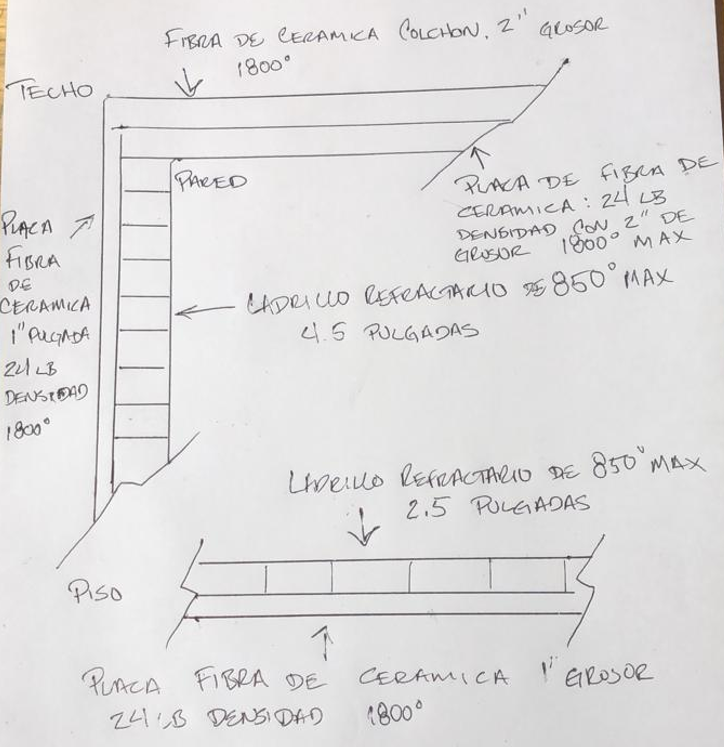 FIBRA DE CERAMICA COLCHON. 2" GROSOR
1800°
TECHO
PARED
PLACA DE FIBRA DE
CERAMICA: 24 LB
DENSIDAD CON 2" DE
GROSOR 1800° MAX
PLACA
FIBRA
DE
CERAMICA
1" PULGADA
24 LB
DENSIDAD
1800°
LADRILLO REFRACTARIO DE 850° MAX
4.5 PULGADAS
LADRILLO REFRACTARIO DE 850° MAX
2.5 PULGADAS
PISO
PLACA FIBRA DE CERAMICA 1" GROSOR
24 LB DENSIDAD 1800°